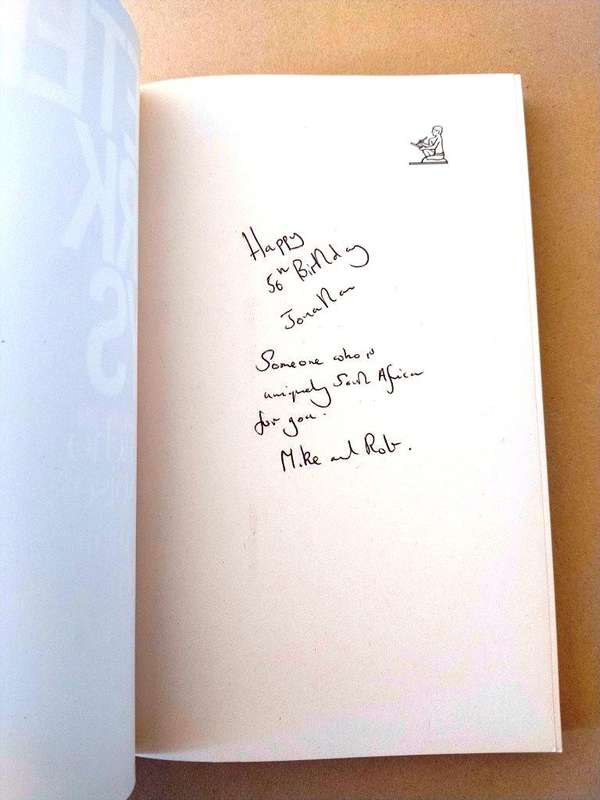 Happy
56th Birthday
Jonathan
Someone who is
uniquely South African
for you.
Mike and Rob.